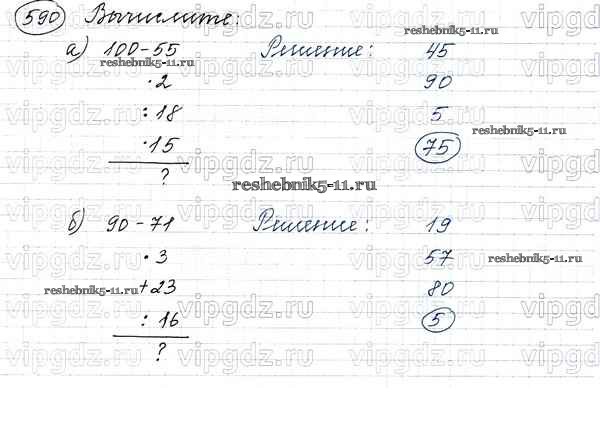 590 Вычислите:
а) 100-55 Решение: 45
·2 90
: 18 5
·15 75
?
б) 90-71 Решение: 19
·3 57
+23 80
: 16 5
?
reshebnik5-11.ru
reshebnik5-11.ru
reshebnik5-11.ru
reshebnik5-11.ru
reshebnik5-11.ru
reshebnik5-11.ru
vipgdz.ru